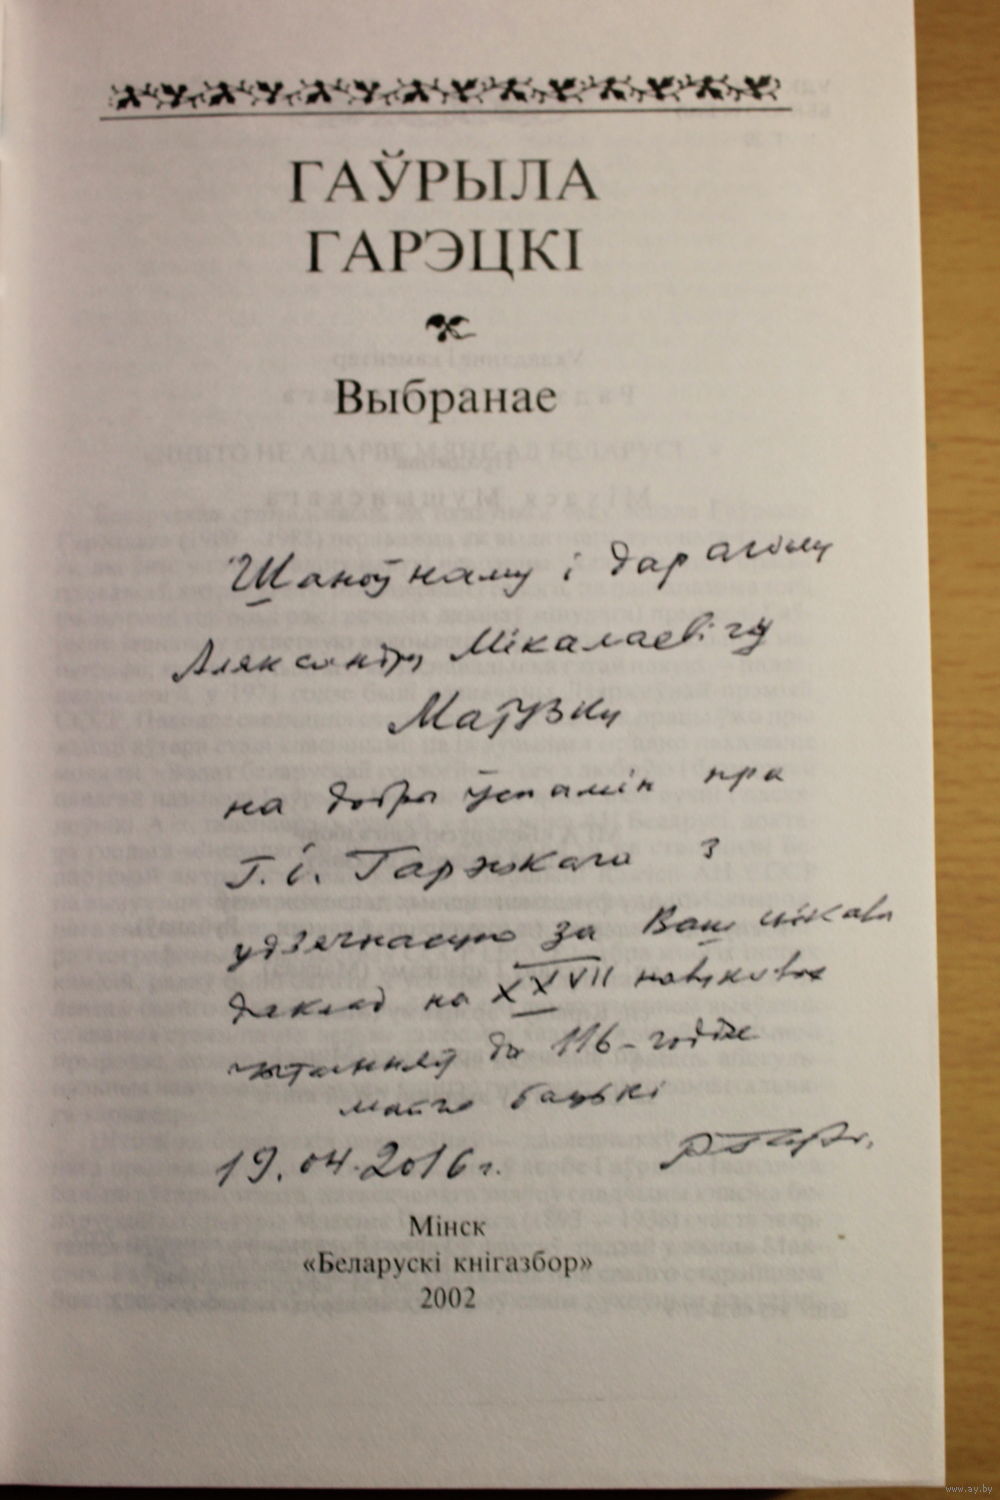 ГАЎРЫЛА
ГАРЭЦКІ
Выбранае
Шаноўнаму і дарагому
Аляксандру Мікалаевічу
Маўзку
на добры ўспамін пра
Г.І. Гарэцкага з
удзячнасцю за Ваш цікавы
даклад на XXVII навуковых
чытаннях да 116-годдзя
майго бацькі
19.04.2016 г.
Мінск
«Беларускі кнігазбор»
2002
www.ay.by